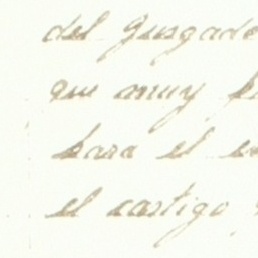 del Juzgado
que muy
para el
el castigo